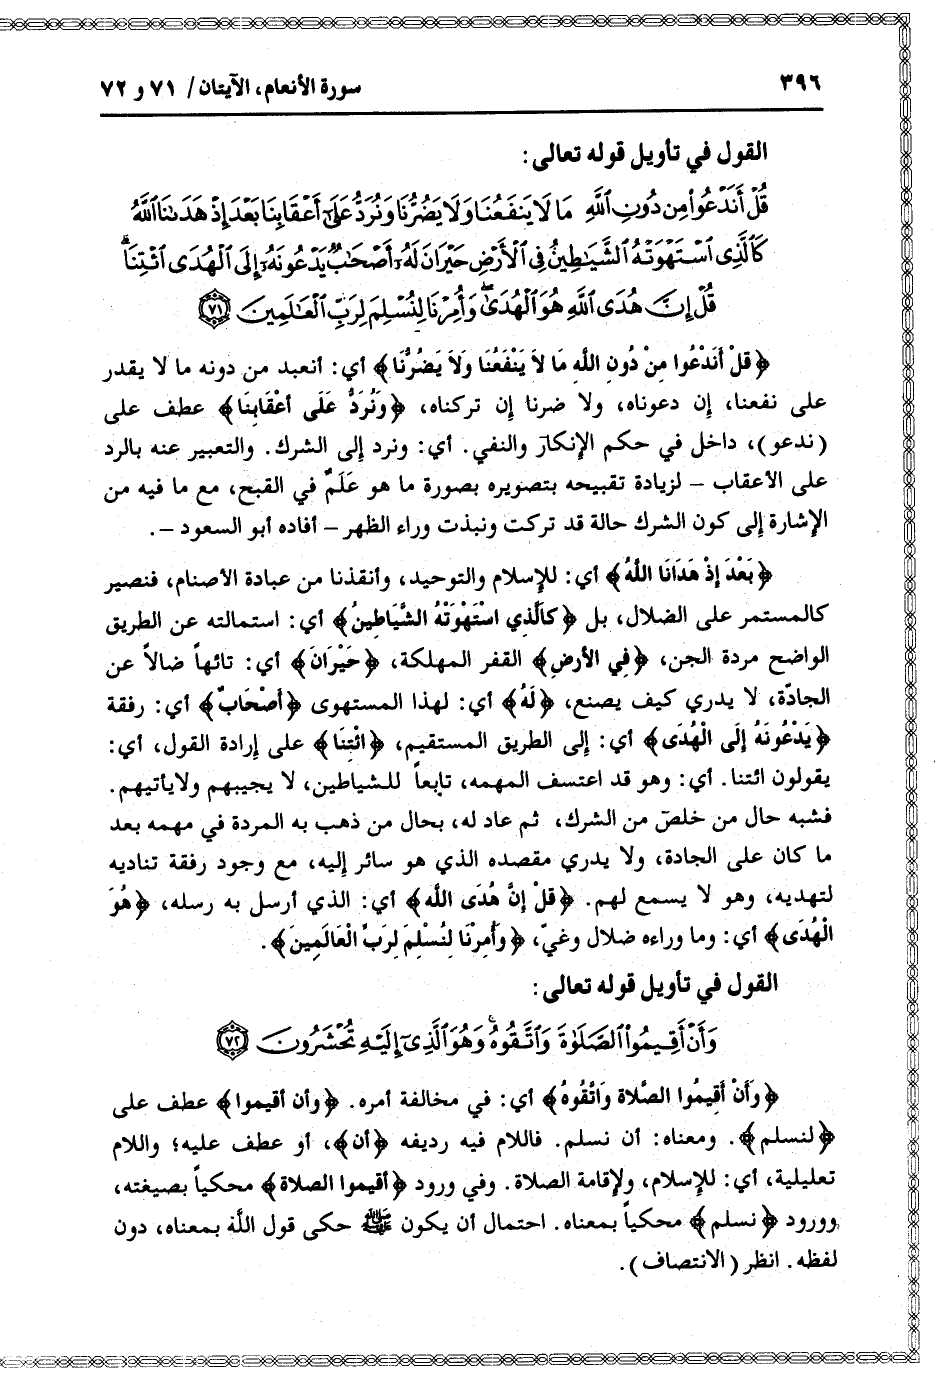 ٣٩٦ سورة الأنعام، الآيتان/ ٧١ و ٧٢
القول في تأويل قوله تعالى:
قُلْ أَنَدْعُوا۟ مِن دُونِ ٱللَّهِ مَا لَا يَنفَعُنَا وَلَا يَضُرُّنَا وَنُرَدُّ عَلَىٰٓ أَعْقَابِنَا بَعْدَ إِذْ هَدَىٰنَا ٱللَّهُ
كَٱلَّذِى ٱسْتَهْوَتْهُ ٱلشَّيَٰطِينُ فِى ٱلْأَرْضِ حَيْرَانَ لَهُۥٓ أَصْحَٰبٌ يَدْعُونَهُۥٓ إِلَى ٱلْهُدَى ٱئْتِنَا ۗ
قُلْ إِنَّ هُدَى ٱللَّهِ هُوَ ٱلْهُدَىٰ ۖ وَأُمِرْنَا لِنُسْلِمَ لِرَبِّ ٱلْعَٰلَمِينَ ﴿٧١﴾
﴿قُلْ أَنَدْعُوا مِنْ دُونِ اللَّهِ مَا لَا يَنْفَعُنَا وَلَا يَضُرُّنَا﴾ أي: أنعبد من دونه ما لا يقدر
على نفعنا، إن دعوناه، ولا ضرنا إن تركناه، ﴿وَنُرَدُّ عَلَى أَعْقَابِنَا﴾ عطف على
(ندعو)، داخل في حكم الإنكار والنفي. أي: ونرد إلى الشرك. والتعبير عنه بالرد
على الأعقاب – لزيادة تقبيحه بتصويره بصورة ما هو عَلَمٌ في القبح، مع ما فيه من
الإشارة إلى كون الشرك حالة قد تركت ونبذت وراء الظهر – أفاده أبو السعود –.
﴿بَعْدَ إِذْ هَدَانَا اللَّهُ﴾ أي: للإسلام والتوحيد، وأنقذنا من عبادة الأصنام، فنصير
كالمستمر على الضلال، بل ﴿كَالَّذِي اسْتَهْوَتْهُ الشَّيَاطِينُ﴾ أي: استمالته عن الطريق
الواضح مردة الجن، ﴿فِي الْأَرْضِ﴾ القفر المهلكة، ﴿حَيْرَانَ﴾ أي: تائهاً ضالاً عن
الجادّة، لا يدري كيف يصنع، ﴿لَهُ﴾ أي: لهذا المستهوى ﴿أَصْحَابٌ﴾ أي: رفقة
﴿يَدْعُونَهُ إِلَى الْهُدَى﴾ أي: إلى الطريق المستقيم، ﴿ائْتِنَا﴾ على إرادة القول، أي:
يقولون ائتنا. أي: وهو قد اعتسف المهمه، تابعاً للشياطين، لا يجيبهم ولا يأتيهم.
فشبه حال من خلص من الشرك، ثم عاد له، بحال من ذهب به المردة في مهمه بعد
ما كان على الجادة، ولا يدري مقصده الذي هو سائر إليه، مع وجود رفقة تناديه
لتهديه، وهو لا يسمع لهم. ﴿قُلْ إِنَّ هُدَى اللَّهِ﴾ أي: الذي أرسل به رسله، ﴿هُوَ
الْهُدَى﴾ أي: وما وراءه ضلال وغيّ، ﴿وَأُمِرْنَا لِنُسْلِمَ لِرَبِّ الْعَالَمِينَ﴾.
القول في تأويل قوله تعالى:
وَأَنْ أَقِيمُوا۟ ٱلصَّلَوٰةَ وَٱتَّقُوهُ ۚ وَهُوَ ٱلَّذِىٓ إِلَيْهِ تُحْشَرُونَ ﴿٧٢﴾
﴿وَأَنْ أَقِيمُوا الصَّلَاةَ وَاتَّقُوهُ﴾ أي: في مخالفة أمره. ﴿وأن أقيموا﴾ عطف على
﴿لنسلم﴾. ومعناه: أن نسلم. فاللام فيه رديفه ﴿أن﴾، أو عطف عليه؛ واللام
تعليلية، أي: للإسلام، ولإقامة الصلاة. وفي ورود ﴿أقيموا الصلاة﴾ محكياً بصيغته،
وورود ﴿نسلم﴾ محكياً بمعناه. احتمال أن يكون ﷺ حكى قول الله بمعناه، دون
لفظه. انظر (الانتصاف).